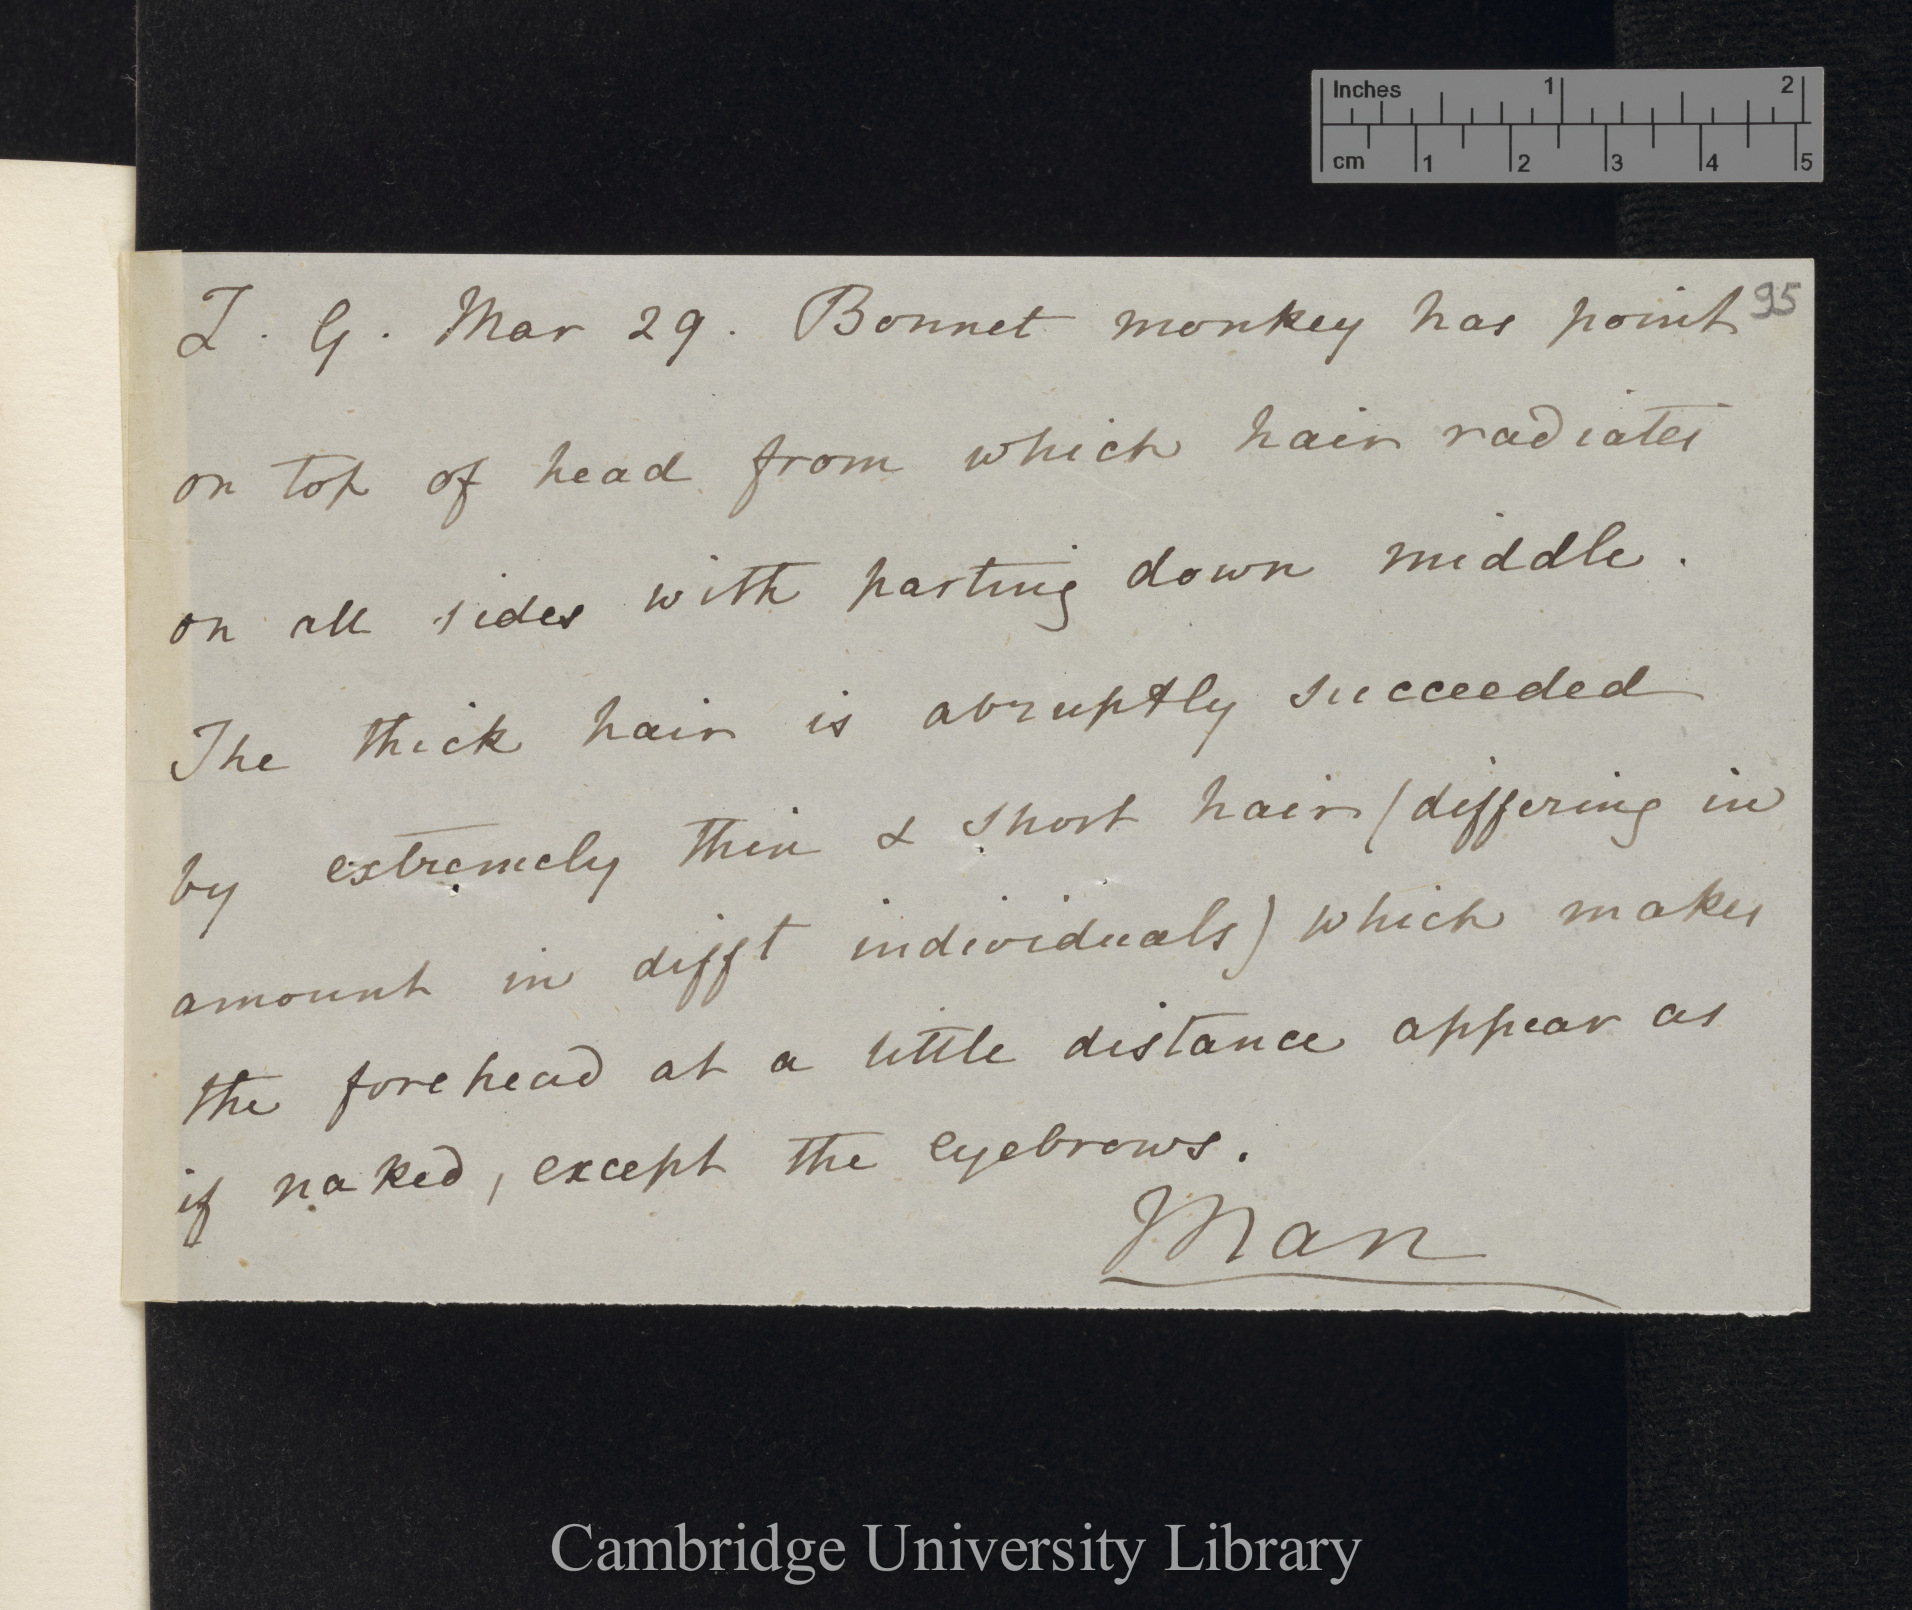 Inches 1 2
cm 1 2 3 4 5
95
Z. G. Mar 29. Bonnet monkey has point
on top of head from which hair radiates
on all sides with parting down middle.
The thick hair is abruptly succeeded
by extremely thin & short hair (differing in
amount in difft individuals) which makes
the forehead at a little distance appear as
if naked, except the eyebrows.
Man
Cambridge University Library